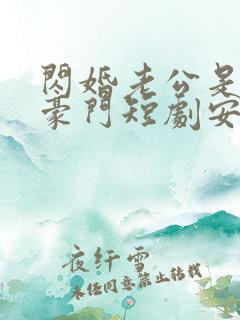 閃婚老公是
豪門短劇安
夜纤雪
未经同意禁止转载